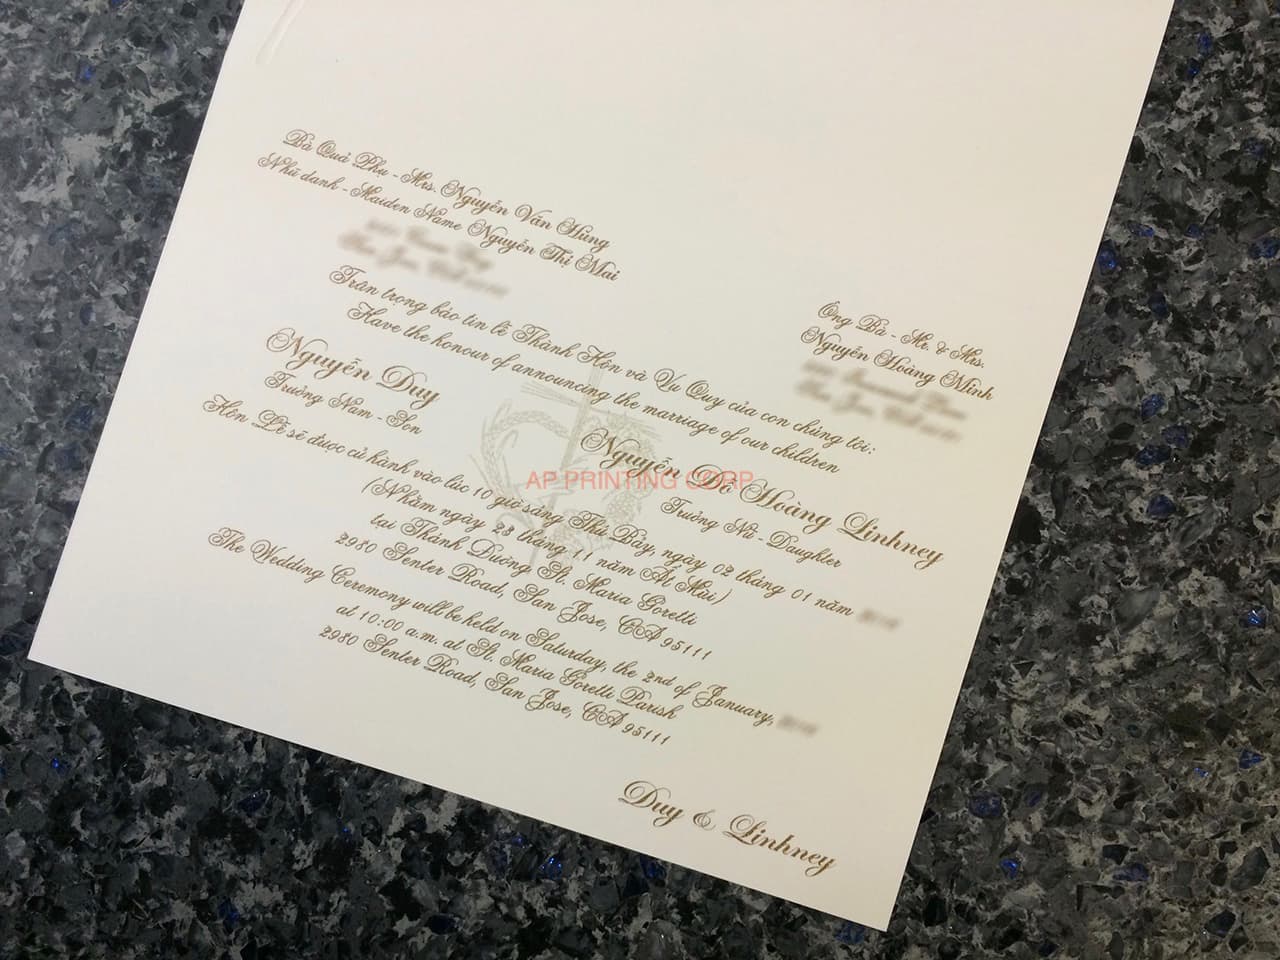 Bà Quả Phụ - Mrs. Nguyễn Văn Hùng
Nhũ danh - Maiden Name Nguyễn Thị Mai
Ông Bà - Mr. & Mrs.
Nguyễn Hoàng Minh
Trân trọng báo tin lễ Thành Hôn và Vu Quy của con chúng tôi:
Have the honour of announcing the marriage of our children
Nguyễn Duy
Trưởng Nam - Son
Nguyễn Đỗ Hoàng Linhney
Trưởng Nữ - Daughter
AP PRINTING CORP
Hôn Lễ sẽ được cử hành vào lúc 10 giờ sáng Thứ Bảy, ngày 02 tháng 01 năm
(Nhằm ngày 23 tháng 11 năm Ất Mùi)
tại Thánh Đường St. Maria Goretti
2980 Senter Road, San Jose, CA 95111
The Wedding Ceremony will be held on Saturday, the 2nd of January,
at 10:00 a.m. at St. Maria Goretti Parish
2980 Senter Road, San Jose, CA 95111
Duy & Linhney